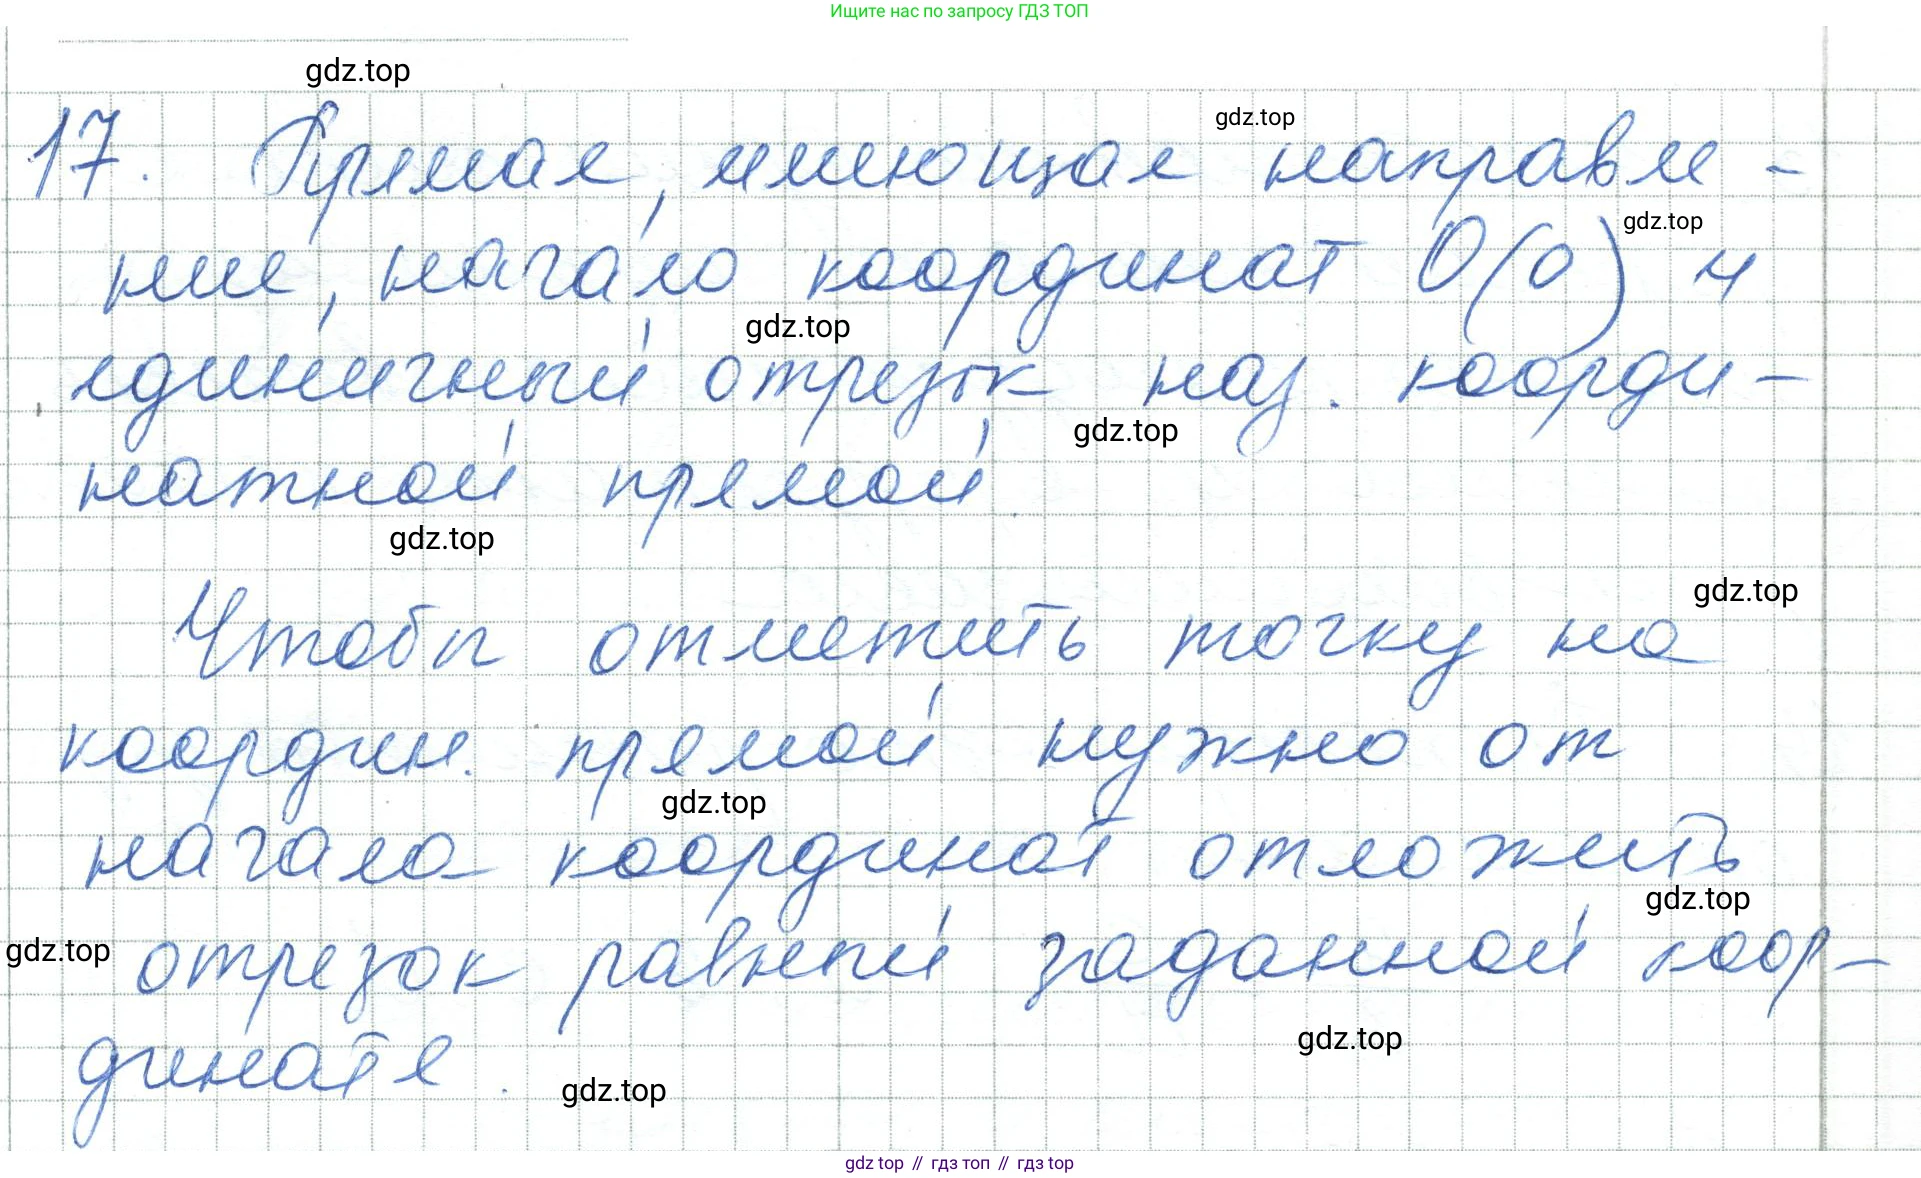 Ищите нас по запросу ГДЗ ТОП
gdz.top
17. Прямая, имеющая направле-
gdz.top
ние, начало координат О(о) и
gdz.top
единичный отрезок наз. коорди-
gdz.top
натной прямой.
gdz.top
gdz.top
Чтобы отметить точку на
gdz.top
координ. прямой нужно от
gdz.top
начала координат отложить
gdz.top
отрезок равный заданной коор-
gdz.top
динате.
gdz.top
gdz.top
gdz top // гдз топ // гдз top